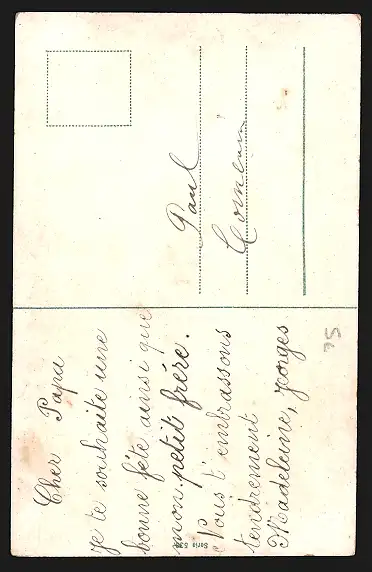 Cher Papa
je te souhaite une
bonne fête ainsi que
mon petit frère.
Nous t'embrassons
tendrement
Madeleine, Georges
Paul
35
Serie 534